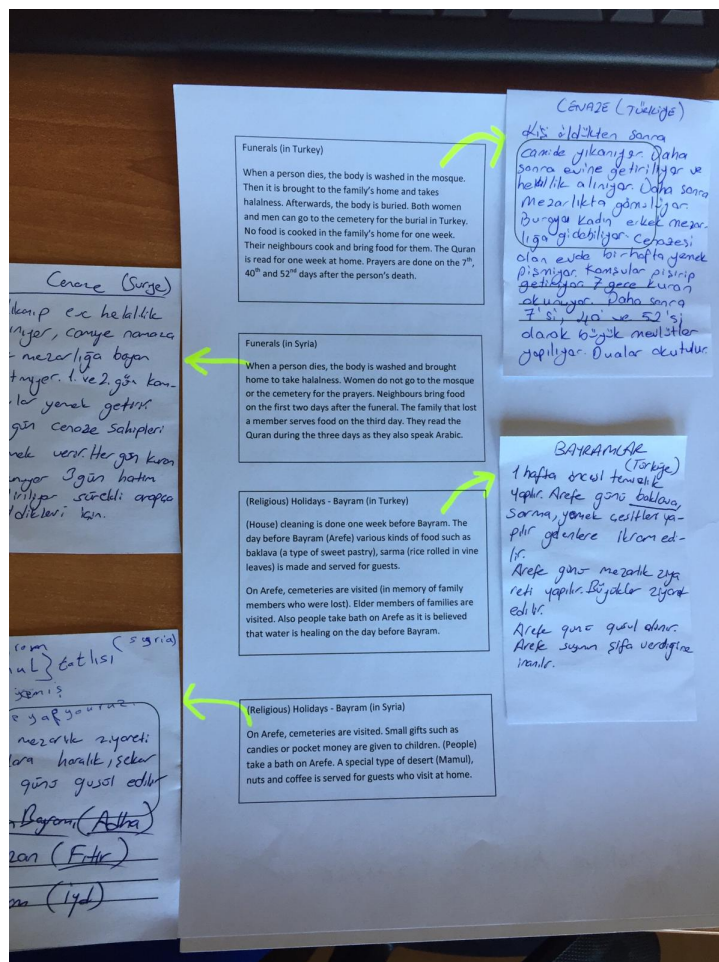 Funerals (in Turkey)
When a person dies, the body is washed in the mosque.
Then it is brought to the family's home and takes
halalness. Afterwards, the body is buried. Both women
and men can go to the cemetery for the burial in Turkey.
No food is cooked in the family's home for one week.
Their neighbours cook and bring food for them. The Quran
is read for one week at home. Prayers are done on the 7th,
40th and 52nd days after the person's death.
Funerals (in Syria)
When a person dies, the body is washed and brought
home to take halalness. Women do not go to the mosque
or the cemetery for the prayers. Neighbours bring food
on the first two days after the funeral. The family that lost
a member serves food on the third day. They read the
Quran during the three days as they also speak Arabic.
(Religious) Holidays - Bayram (in Turkey)
(House) cleaning is done one week before Bayram. The
day before Bayram (Arefe) various kinds of food such as
baklava (a type of sweet pastry), sarma (rice rolled in vine
leaves) is made and served for guests.
On Arefe, cemeteries are visited (in memory of family
members who were lost). Elder members of families are
visited. Also people take bath on Arefe as it is believed
that water is healing on the day before Bayram.
(Religious) Holidays - Bayram (in Syria)
On Arefe, cemeteries are visited. Small gifts such as
candies or pocket money are given to children. (People)
take a bath on Arefe. A special type of desert (Mamul),
nuts and coffee is served for guests who visit at home.
CENAZE (TÜRKİYE)
Kişi öldükten sonra
camide yıkanıyor. Daha
sonra evine getiriliyor ve
helallik alınıyor. Daha sonra
mezarlıkta gömülüyor.
Buraya kadın erkek mezar-
lığa gidebiliyor. Cenazesi
olan evde bir hafta yemek
pişmiyor. Komşular pişirip
getiriyor. 7 gece kuran
okunuyor. Daha sonra
7'si, 40' ve 52'si
olarak büyük mevlütler
yapılıyor. Dualar okutulur.
BAYRAMLAR
(Türkiye)
1 hafta öncesi temizlik
yapılır. Arefe günü baklava,
sarma, yemek çeşitleri ya-
pılır gelenlere ikram edi-
lir.
Arefe günü mezarlık ziya
reti yapılır. Büyükler ziyaret
edilir.
Arefe günü gusül alınır.
Arefe suyunun şifa verdiğine
inanılır.
Cenaze (Suriye)
ev helallik
camiye namaza
mezarlığa bayan
1. ve 2. gün kom-
yemek getirir
gün cenaze sahipleri
verir. Her gün kuran
3 gün hatim
sürekli arapça
için.
(suriye)
tatlısı
mezarlık ziyareti
haralık, şeker
günü gusül edilir
Bayramı (Adha)
(Fıtır)
(iyd)